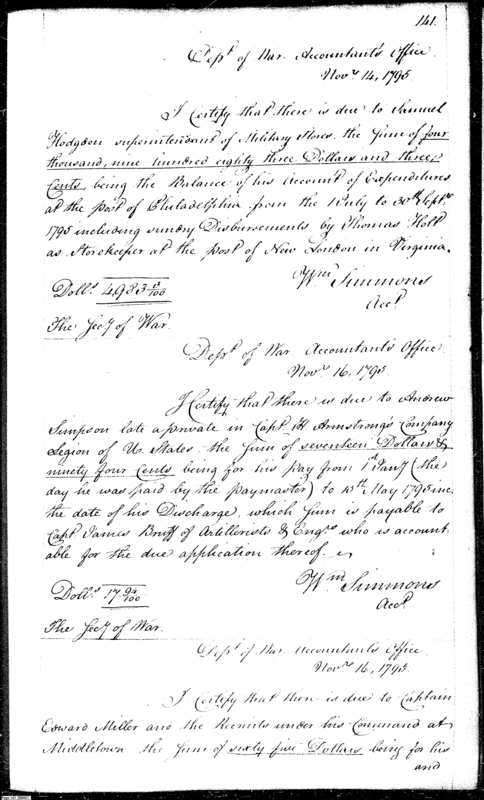 141.
Dept of War Accountant's Office
Novr 14, 1795
I Certify that there is due to Samuel
Hodgdon superintendant of Military Stores the sum of four
thousand, nine hundred eighty three Dollars and three
Cents being the Balance of his Account of Expenditures
at the post of Philadelphia from the 1 July to 30th Septr
1795 including sundry Disbursements by Thomas Holt
as Storekeeper at the post of New London in Virginia.
Wm Simmons
Acct
Dolls 4,983 3/100
The Secy of War.
Dept of War Accountant's Office
Novr 16, 1795.
I Certify that there is due to Andrew
Simpson late a private in Capt Armstrong's Company
Legion of U. States the sum of seventeen Dollars &
ninety four Cents being for his pay from 1st Jany (the
day he was paid by the paymaster) to 15th May 1795 inc.
the date of his Discharge, which sum is payable to
Capt James Bruff of Artillerists & Engrs who is account
able for the due application thereof.
Wm Simmons
Acct
Dolls 17 94/100
The Secy of War.
Dept of War Accountants Office
Novr 16, 1795.
I Certify that there is due to Captain
Edward Miller and the Recruits under his Command at
Middletown the sum of sixty five Dollars being for his
and